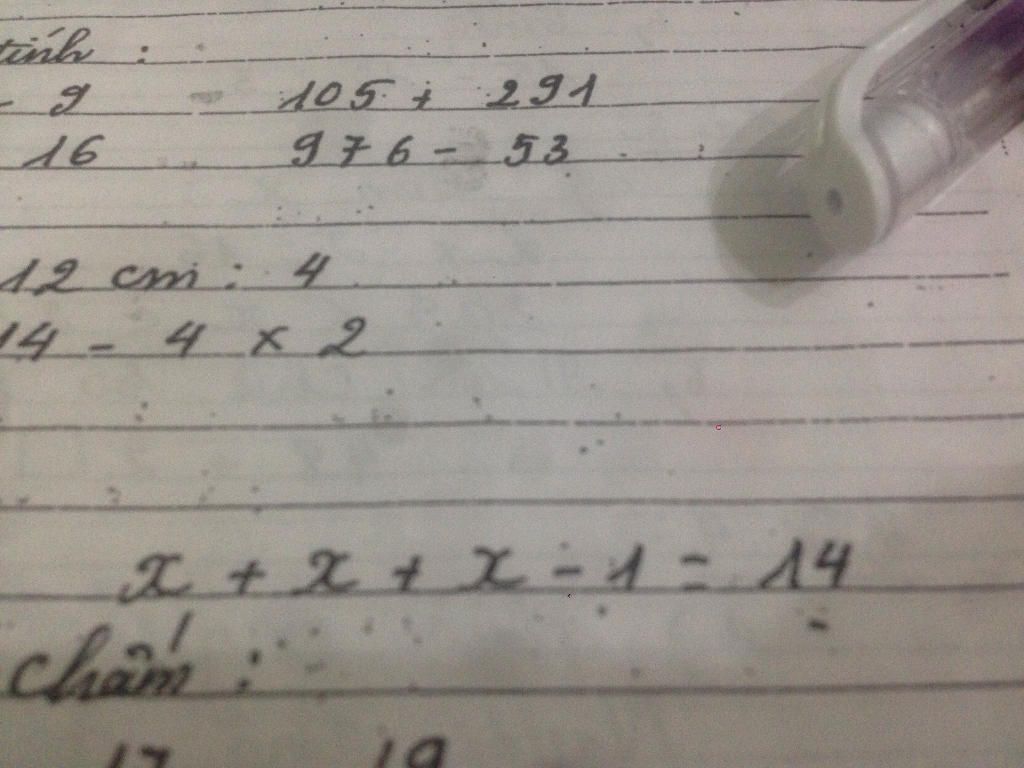 tính :
- 9 105 + 291
16 976 - 53
12 cm : 4
14 - 4 x 2
x + x + x - 1 = 14
chấm :
17 19